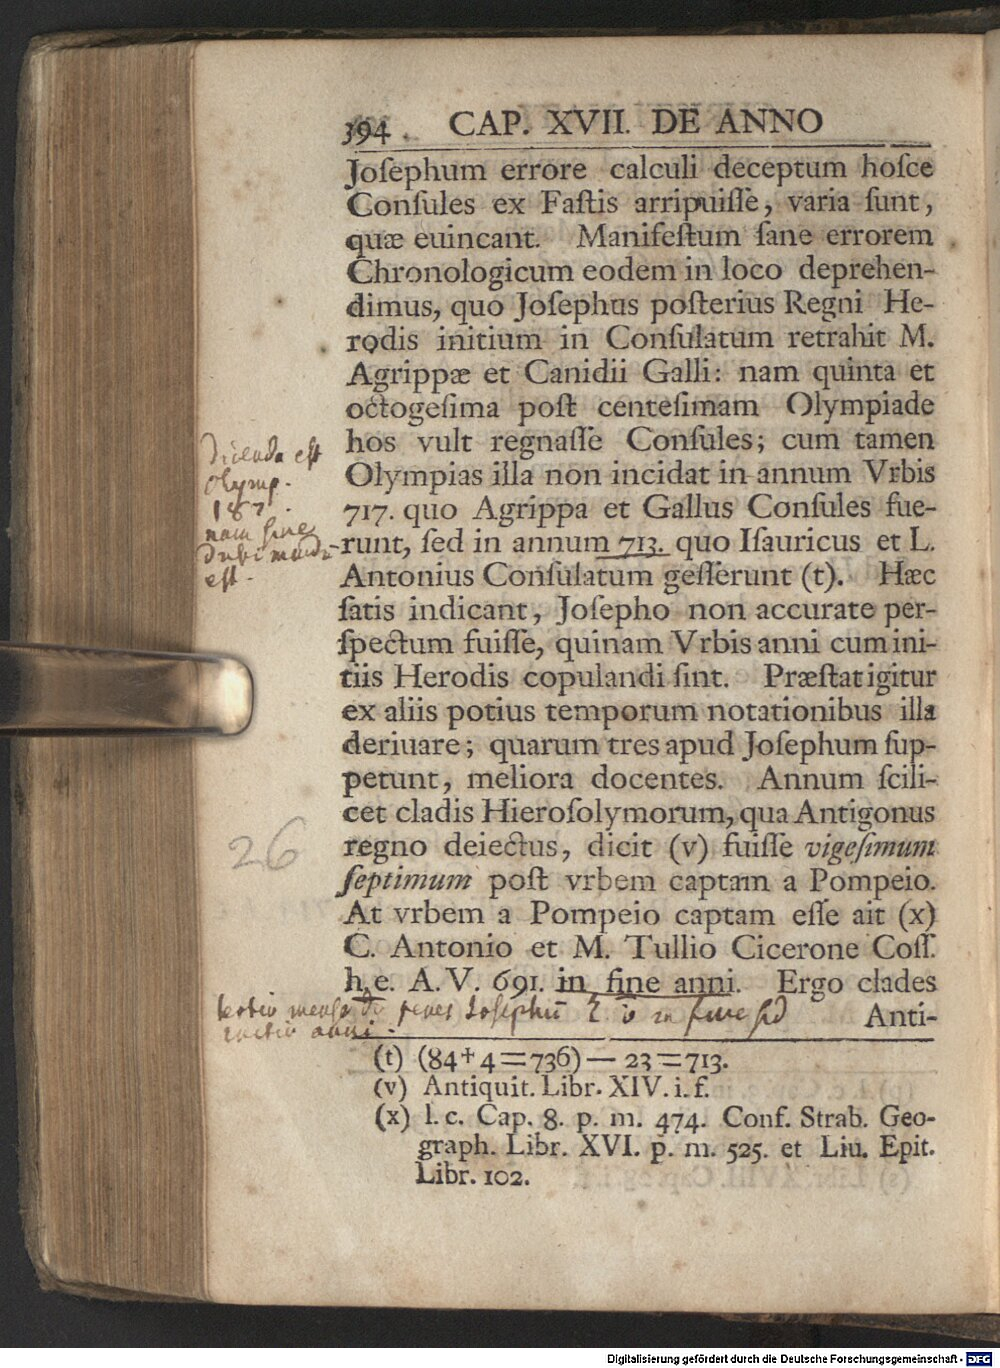 394 CAP. XVII. DE ANNO
Joſephum errore calculi deceptum hoſce
Conſules ex Faſtis arripuiſſe, varia ſunt,
quæ euincant. Manifeſtum ſane errorem
Chronologicum eodem in loco deprehen-
dimus, quo Joſephus poſterius Regni He-
rodis initium in Conſulatum retrahit M.
Agrippæ et Canidii Galli: nam quinta et
octogeſima poſt centeſimam Olympiade
hos vult regnaſſe Conſules; cum tamen
Olympias illa non incidat in annum Vrbis
717. quo Agrippa et Gallus Conſules fue-
runt, ſed in annum 713. quo Iſauricus et L.
Antonius Conſulatum geſſerunt (t). Hæc
ſatis indicant, Joſepho non accurate per-
ſpectum fuiſſe, quinam Vrbis anni cum ini-
tiis Herodis copulandi ſint. Præſtat igitur
ex aliis potius temporum notationibus illa
deriuare; quarum tres apud Joſephum ſup-
petunt, meliora docentes. Annum ſcili-
cet cladis Hieroſolymorum, qua Antigonus
regno deiectus, dicit (v) fuiſſe vigeſimum
ſeptimum poſt vrbem captam a Pompeio.
At vrbem a Pompeio captam eſſe ait (x)
C. Antonio et M. Tullio Cicerone Coſſ.
h. e. A. V. 691. in fine anni. Ergo clades
Anti-
est
Olymp.
nam sine
est.
26
tertio mense
Josephū in fine
anni.
(t) (84+4=736) — 23=713.
(v) Antiquit. Libr. XIV. i. f.
(x) l. c. Cap. 8. p. m. 474. Conf. Strab. Geo-
graph. Libr. XVI. p. m. 525. et Liu. Epit.
Libr. 102.
Digitalisierung gefördert durch die Deutsche Forschungsgemeinschaft - DFG